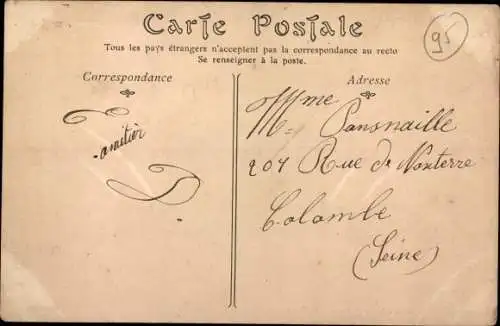 Carte Postale
Tous les pays étrangers n'acceptent pas la correspondance au recto
Se renseigner à la poste.
95
Correspondance
Adresse
Mme Pansnaille
207 Rue de Nanterre
Colombe
(Seine)